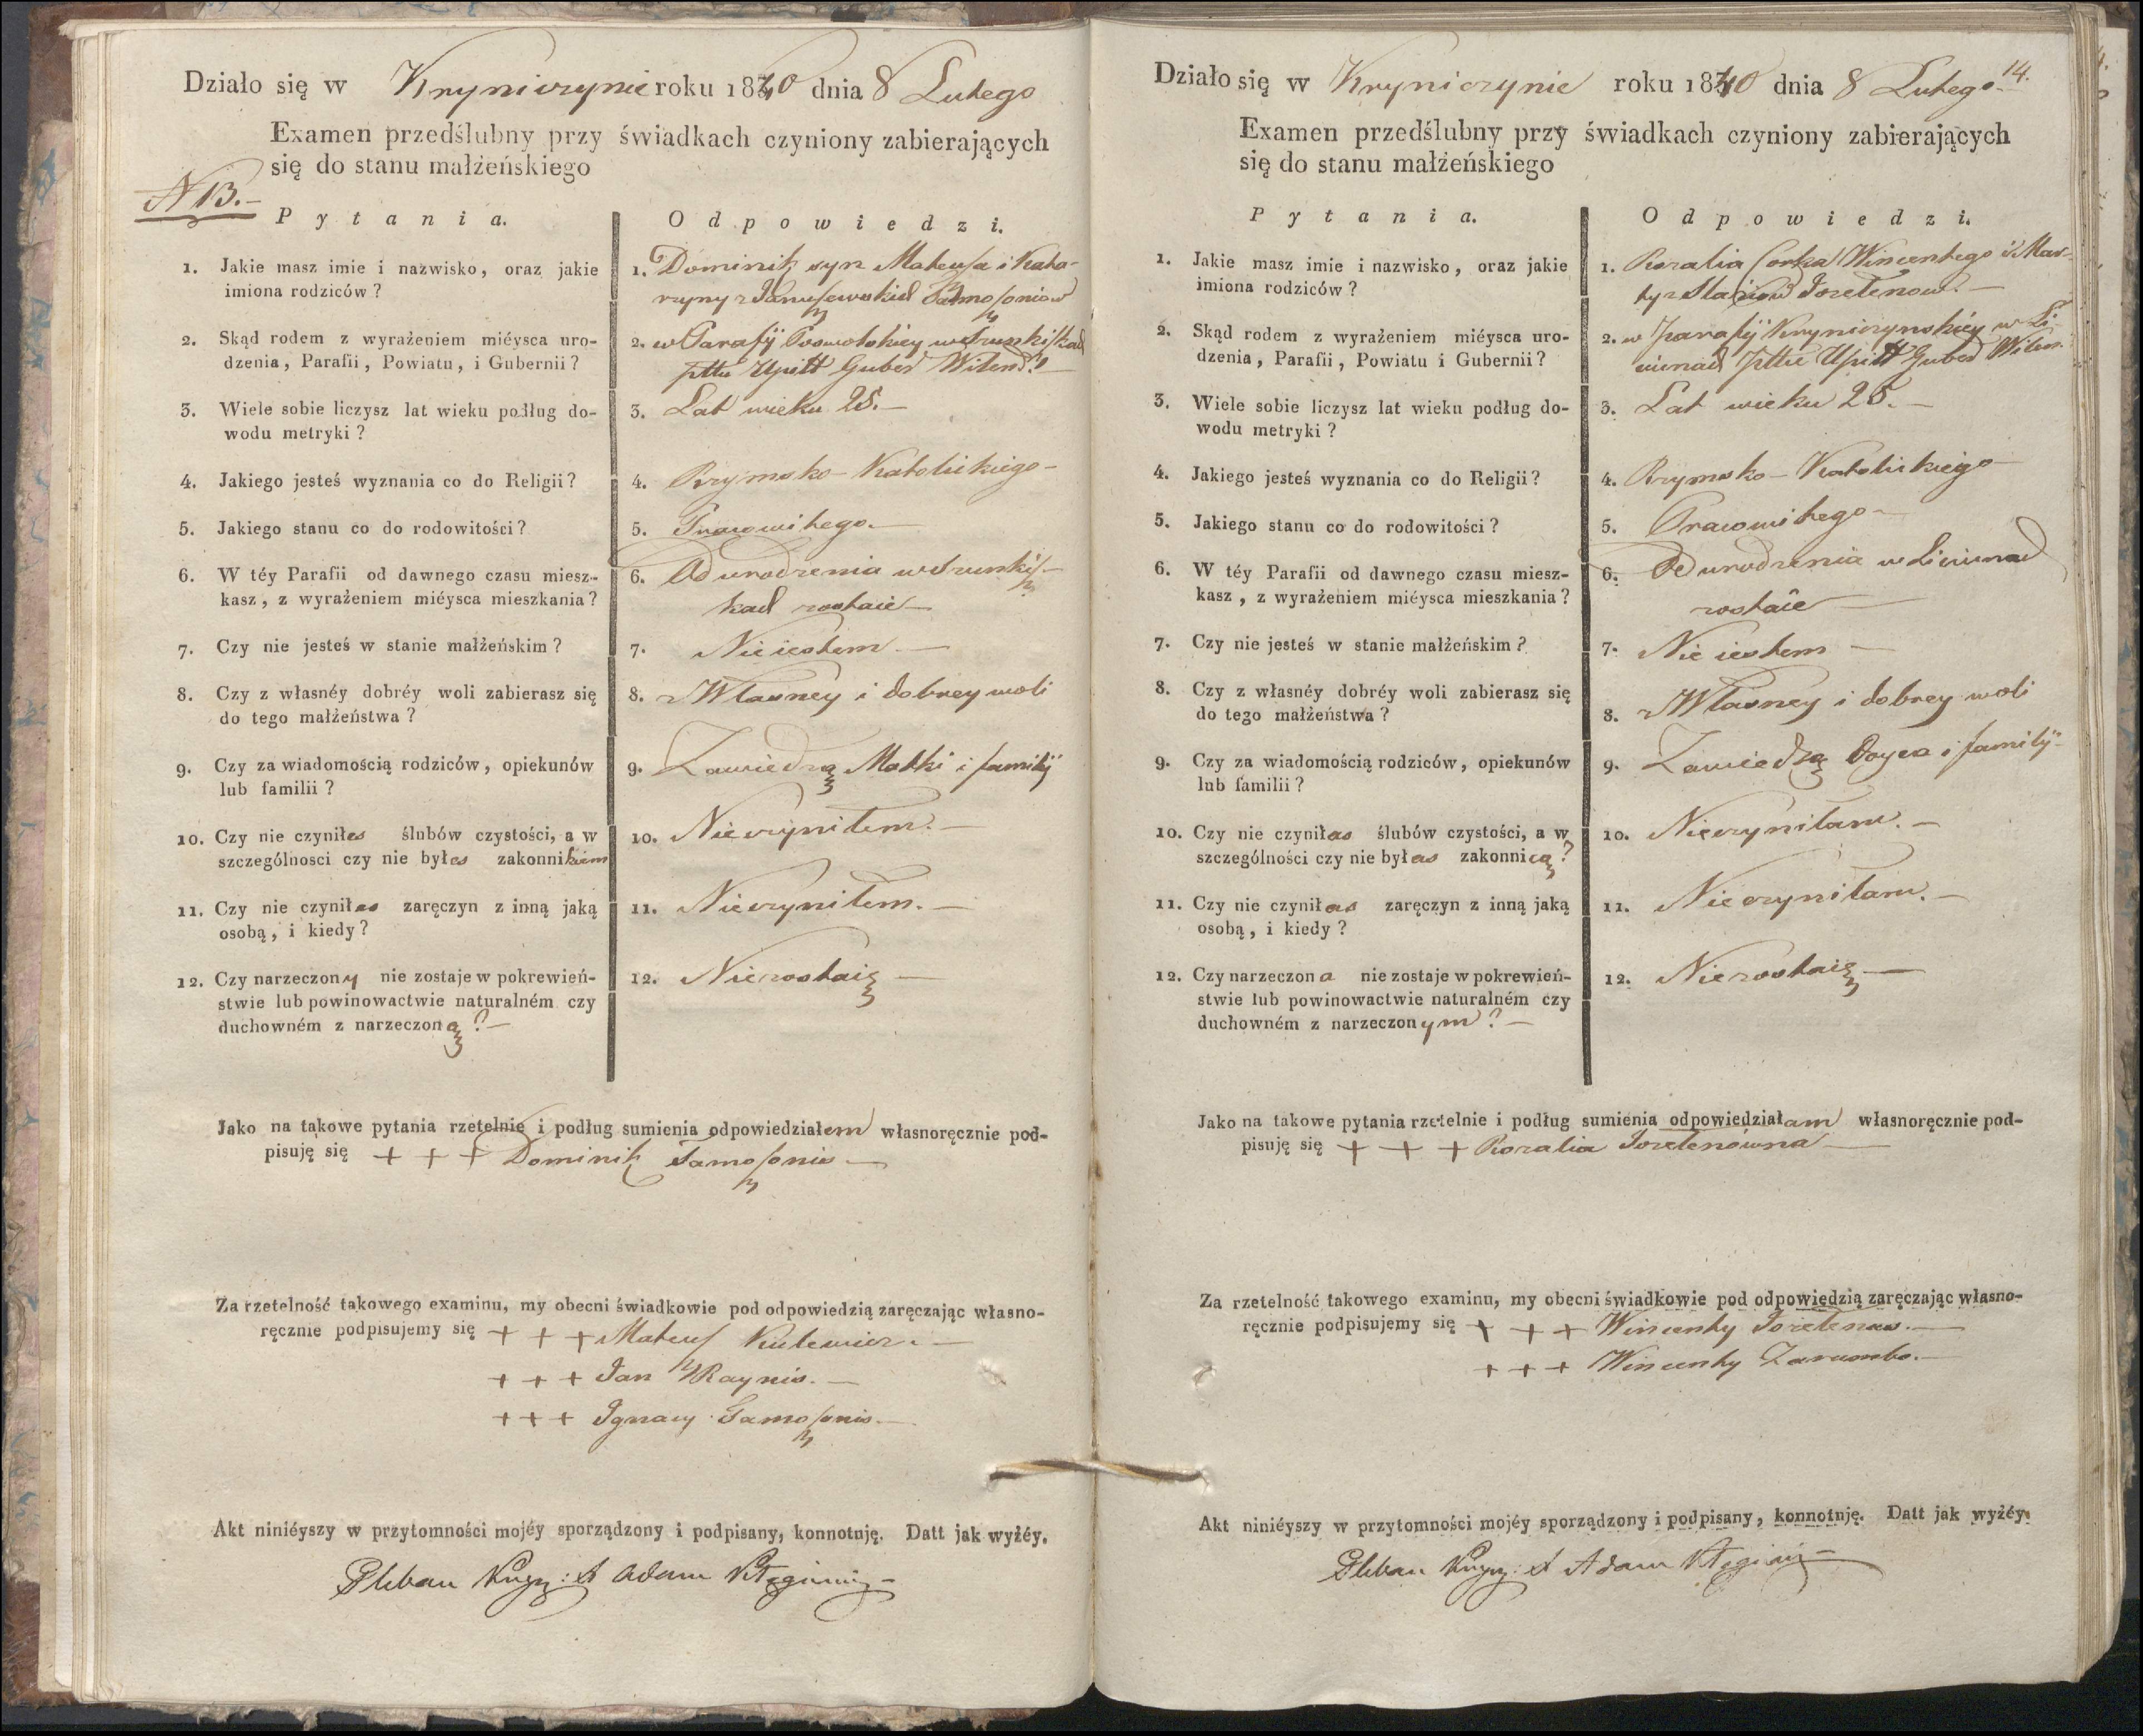 Działo się w Kryniczynie roku 1840 dnia 8 Lutego
Examen przedślubny przy świadkach czyniony zabierających
się do stanu małżeńskiego
N 13.
Pytania.
Odpowiedzi.
1. Jakie masz imie i nazwisko, oraz jakie
imiona rodziców?
1. Dominik syn Mateusza i Kata-
rzyny z
2. Skąd rodem z wyrażeniem miéysca uro-
dzenia, Parafii, Powiatu, i Gubernii?
2. w Parafij
pttu Upitt Guber Wilens
3. Wiele sobie liczysz lat wieku podług do-
wodu metryki?
3. Lat wieku 25.
4. Jakiego jesteś wyznania co do Religii?
4. Rzymsko-Katolickiego
5. Jakiego stanu co do rodowitości?
5. Pracowitego.
6. W téy Parafii od dawnego czasu miesz-
kasz, z wyrażeniem miéysca mieszkania?
6. Od urodzenia w
zostaie
7. Czy nie jesteś w stanie małżeńskim?
7. Nie iestem
8. Czy z własnéy dobréy woli zabierasz się
do tego małżeństwa?
8. z Własney i dobrey woli
9. Czy za wiadomością rodziców, opiekunów
lub familii?
9. Zawiedzą Matki i familij
10. Czy nie czyniłes ślubów czystości, a w
szczególnosci czy nie byłes zakonnikiem
10. Nieczyniłem.
11. Czy nie czyniłes zaręczyn z inną jaką
osobą, i kiedy?
11. Nieczyniłem.
12. Czy narzeczony nie zostaje w pokrewień-
stwie lub powinowactwie naturalném czy
duchowném z narzeczoną?
12. Niezostaię
Jako na takowe pytania rzetelnie i podług sumienia odpowiedziałem własnoręcznie pod-
pisuję się + + + Dominik Tamoszonis
Za rzetelność takowego examinu, my obecni świadkowie pod odpowiedzią zaręczając własno-
ręcznie podpisujemy się + + + Mateusz Kulewicz.
+ + + Jan Raynis.
+ + + Ignacy Tamoszonis
Akt niniéyszy w przytomności mojéy sporządzony i podpisany, konnotuję. Datt jak wyżéy.
Pleban X Adam
14.
Działo się w Kryniczynie roku 1840 dnia 8 Lutego
Examen przedślubny przy świadkach czyniony zabierających
się do stanu małżeńskiego
Pytania.
Odpowiedzi.
1. Jakie masz imie i nazwisko, oraz jakie
imiona rodziców?
1. Rozalia Corka Wincentego i Mar-
ty z Jozelenow
2. Skąd rodem z wyrażeniem miéysca uro-
dzenia, Parafii, Powiatu i Gubernii?
2. w parafij Kryniczynskiéy w Li-
pttu Upitt Guber Wilen.
3. Wiele sobie liczysz lat wieku podług do-
wodu metryki?
3. Lat wieku 25.
4. Jakiego jesteś wyznania co do Religii?
4. Rzymsko-Katolickiego
5. Jakiego stanu co do rodowitości?
5. Pracowitego
6. W téy Parafii od dawnego czasu miesz-
kasz, z wyrażeniem miéysca mieszkania?
6. Od urodzenia w
zostaie
7. Czy nie jesteś w stanie małżeńskim?
7. Nie iestem
8. Czy z własnéy dobréy woli zabierasz się
do tego małżeństwa?
8. z Własney i dobrey woli
9. Czy za wiadomością rodziców, opiekunów
lub familii?
9. Zawiedzą Oyca i familij
10. Czy nie czyniłas ślubów czystości, a w
szczególności czy nie byłas zakonnicą?
10. Nieczyniłam.
11. Czy nie czyniłas zaręczyn z inną jaką
osobą, i kiedy?
11. Nieczyniłam.
12. Czy narzeczona nie zostaje w pokrewień-
stwie lub powinowactwie naturalném czy
duchowném z narzeczonym?
12. Niezostaię
Jako na takowe pytania rzetelnie i podług sumienia odpowiedziałam własnoręcznie pod-
pisuję się + + + Rozalia Jozelenowna
Za rzetelność takowego examinu, my obecni świadkowie pod odpowiedzią zaręczając własno-
ręcznie podpisujemy się + + + Wincenty Jozelenas.
+ + + Wincenty Zarumbo.
Akt niniéyszy w przytomności mojéy sporządzony i podpisany, konnotuję. Datt jak wyżéy.
Pleban X Adam